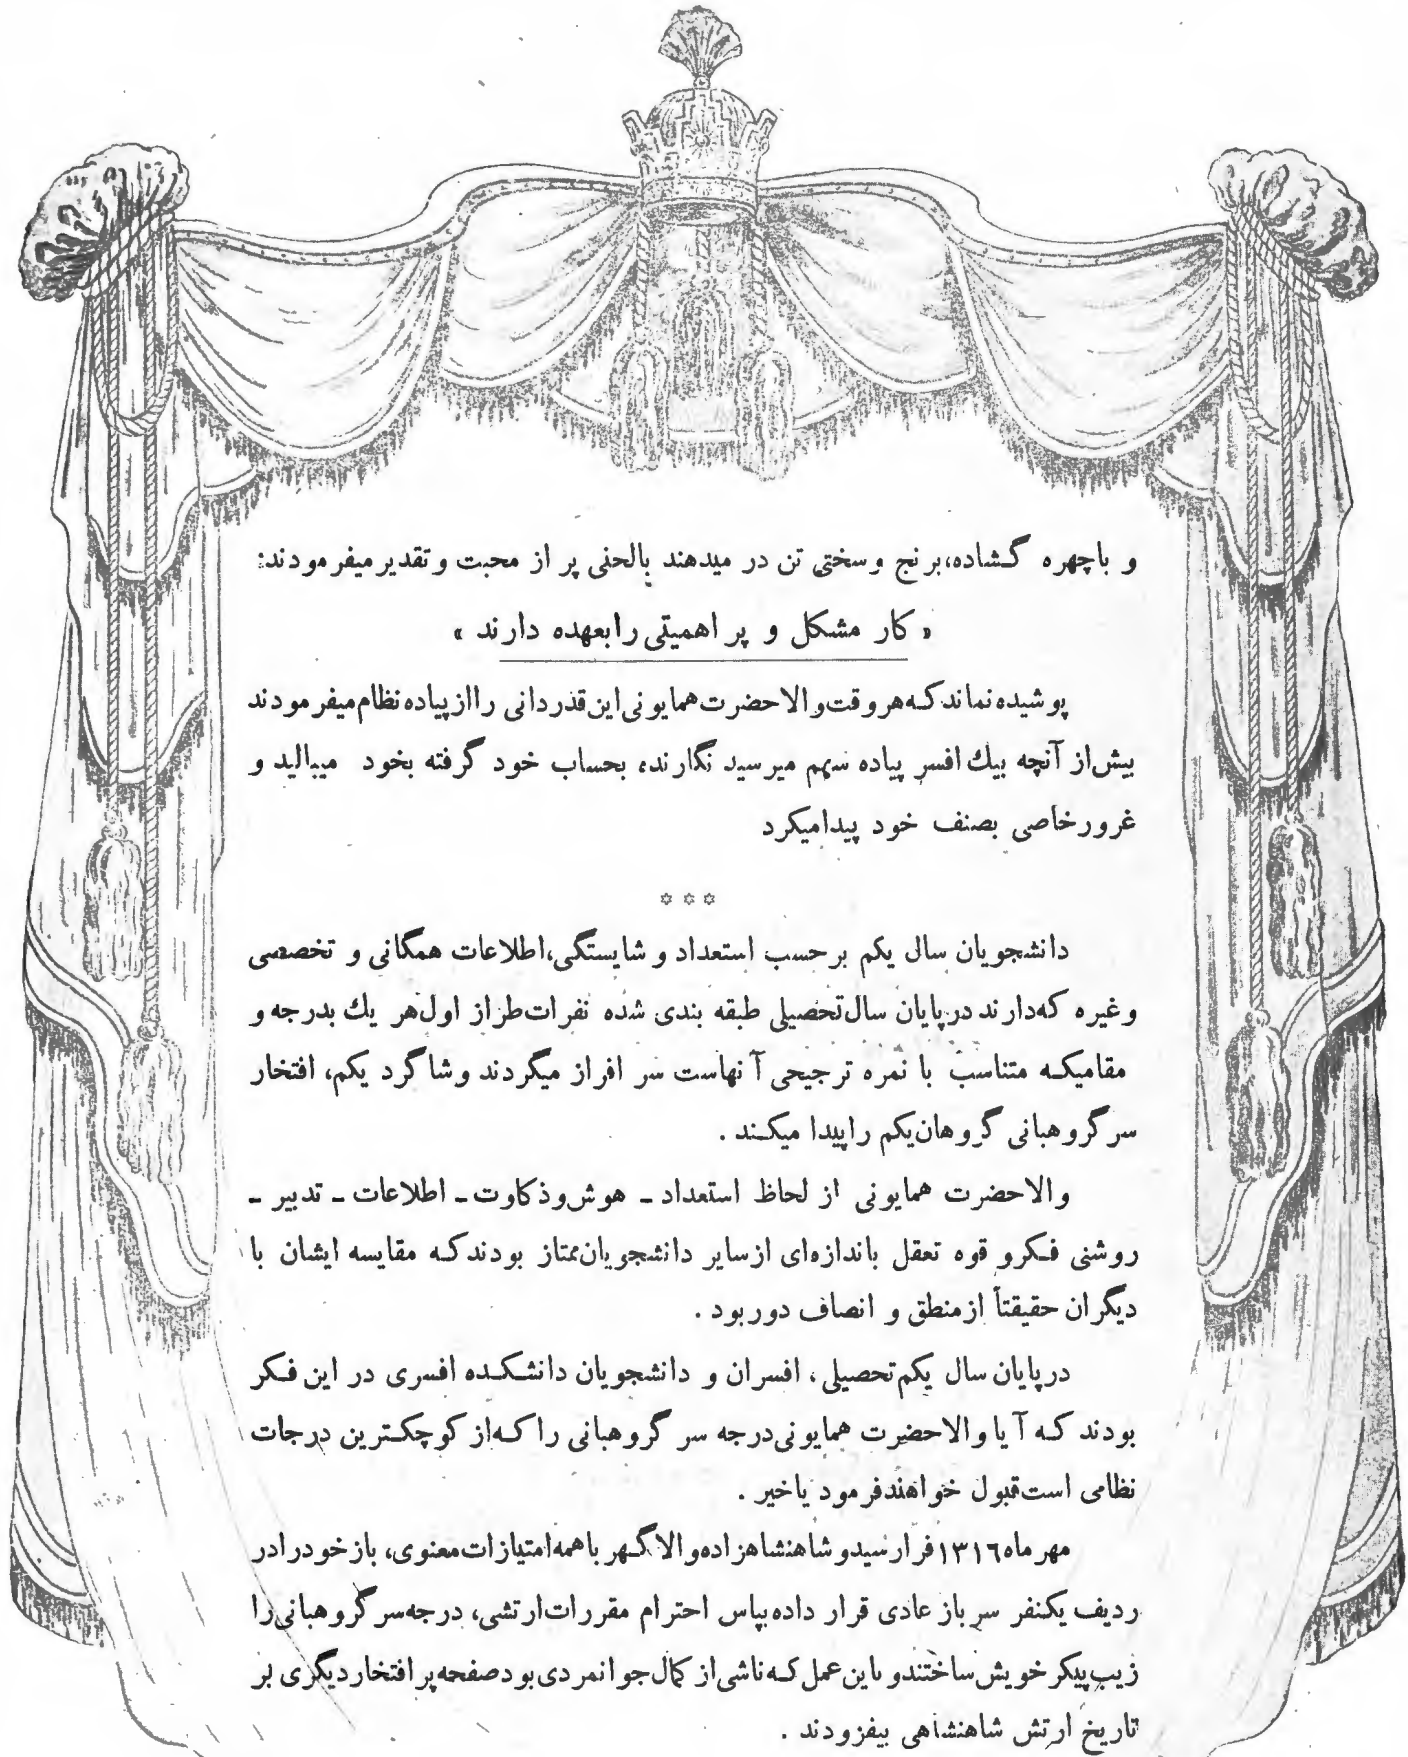 و باچهره گشاده،برنج وسختی تن در میدهند بالحنی پر از محبت وتقدیر میفرمودند:
« کار مشکل و پر اهمیتی رابعهده دارند »
پوشیده نماند که هر وقت والاحضرت همایونی این قدردانی رااز پیاده نظام میفرمودند
بیش از آنچه بیك افسر پیاده سهم میرسید نگارنده بحساب خود گرفته بخود میبالید و
غرور خاصی بصنف خود پیدا میکرد
* * *
دانشجویان سال یکم برحسب استعداد و شایستگی،اطلاعات همگانی و تخصصی
وغیره که دارند در پایان سال تحصیلی طبقه بندی شده نفرات طراز اول هر یك بدرجه و
مقامیکه متناسب با نمره ترجیحی آنهاست سر افراز میگردند وشاگرد یکم، افتخار
سر گروهبانی گروهان یکم راپیدا میکند .
والاحضرت همایونی از لحاظ استعداد ـ هوش وذکاوت ـ اطلاعات ـ تدبیر ـ
روشنی فکرو قوه تعقل باندازه‌ای ازسایر دانشجویان ممتاز بودند که مقایسه ایشان با
دیگران حقیقتاً ازمنطق و انصاف دور بود .
درپایان سال یکم تحصیلی، افسران و دانشجویان دانشکده افسری در این فکر
بودند که آیا والاحضرت همایونی درجه سر گروهبانی را که از کوچکترین درجات
نظامی است قبول خواهند فرمود یاخیر .
مهر ماه ۱۳۱۶ فرا رسیدو شاهنشاهزاده والاگهر باهمه امتیازات معنوی، باز خود رادر
ردیف یکنفر سرباز عادی قرار داده بپاس احترام مقررات ارتشی، درجه سر گروهبانی را
زیب پیکر خویش ساختندو باین عمل که ناشی از کمال جوانمردی بود صفحه پر افتخار دیگری بر
تاریخ ارتش شاهنشاهی بیفزودند .